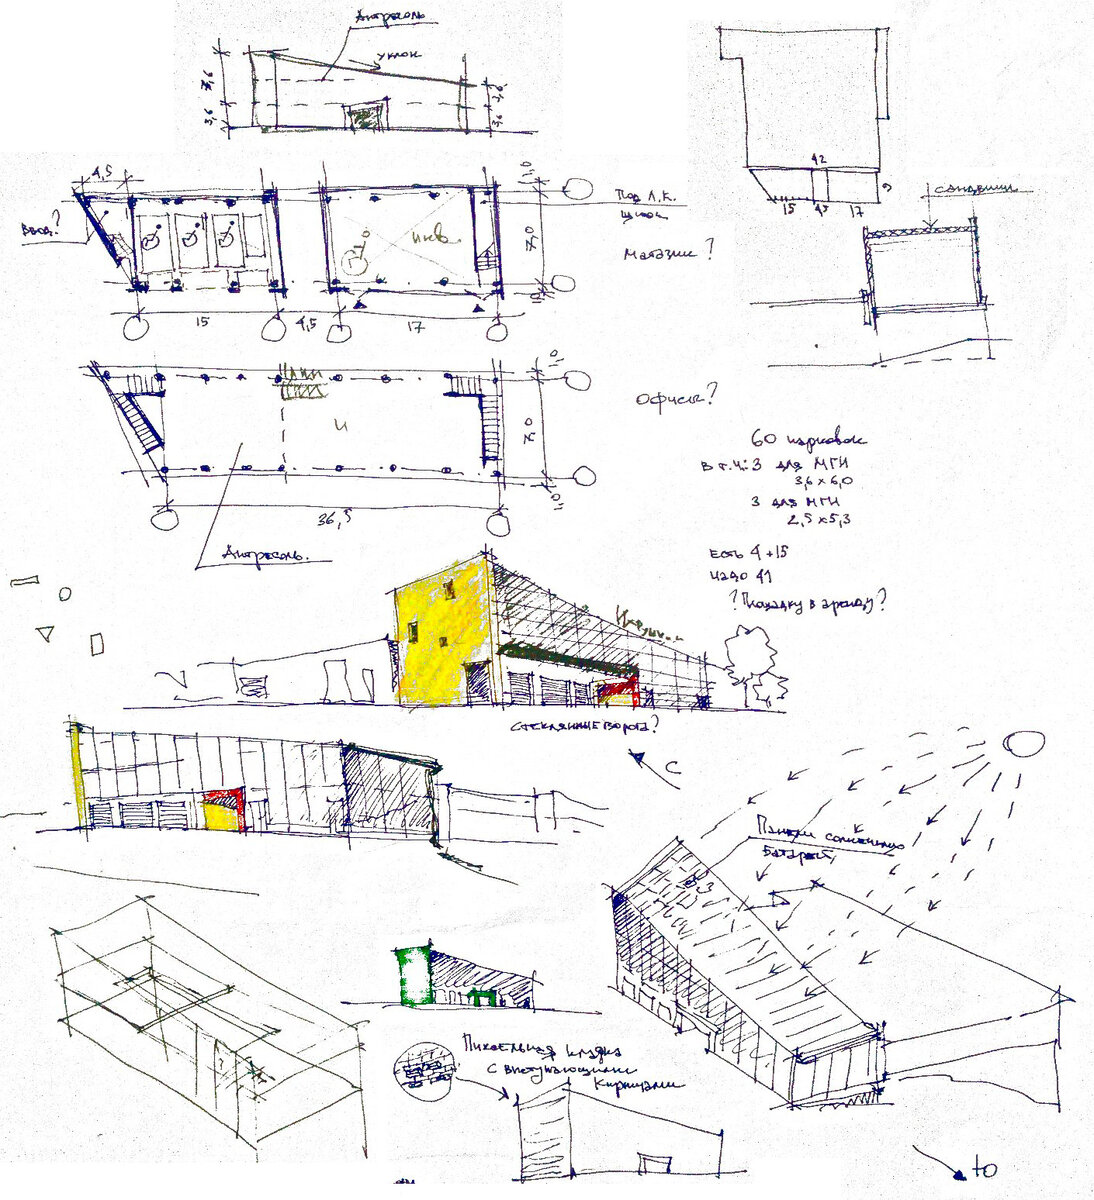 Антресоль
уклон
7,6
3,6
3,6
4,5
1,0
Ввод?
инв.
7,0
15
4,5
17
Под Л.К.
Магазин?
42
9
15
4,5
17
сэндвич
1,0
7,0
1,0
Офисы?
36,5
Антресоль.
60 парковок
в т.ч: 3 для МГН
3,6 x 6,0
3 для МГН
2,5 x 5,3
Есть 4 + 15
надо 41
? Площадку в аренду?
стеклянные ворота?
С
Панели солнечных
батарей
Пиксельная кладка
с выступающими
кирпичами
Ю